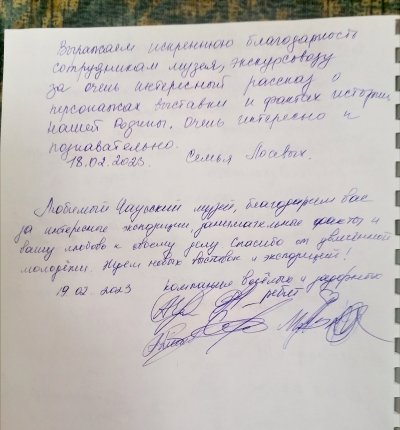 Выражаем искреннюю благодарность
сотрудникам музея, экскурсоводу
за очень интересный рассказ о
персонажах выставки и фактах истории
нашей Родины. Очень интересно и
познавательно.
18.02.2023. Семья Лосевых.
Любимый музей, благодарим вас
за интересные экспозиции, занимательные факты и
вашу любовь к своему делу Спасибо от
молодёжи. Ждем новых выставок и экспозиций!
19 02 2023 компания весёлых и задорных
ребят